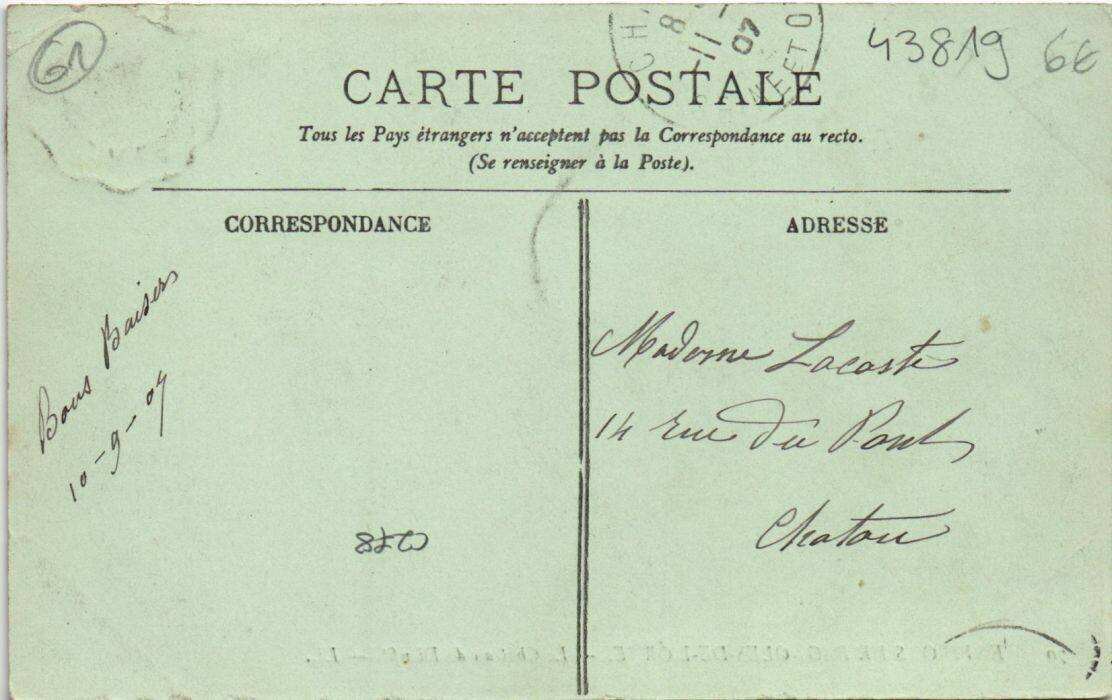 61
43819 6€
CH
8
-11
07
SEINE ET O
CARTE POSTALE
Tous les Pays étrangers n'acceptent pas la Correspondance au recto.
(Se renseigner à la Poste).
CORRESPONDANCE
ADRESSE
Bons Baisers
10-9-07
Madame Lacoste
14 rue du Pont
Chatou